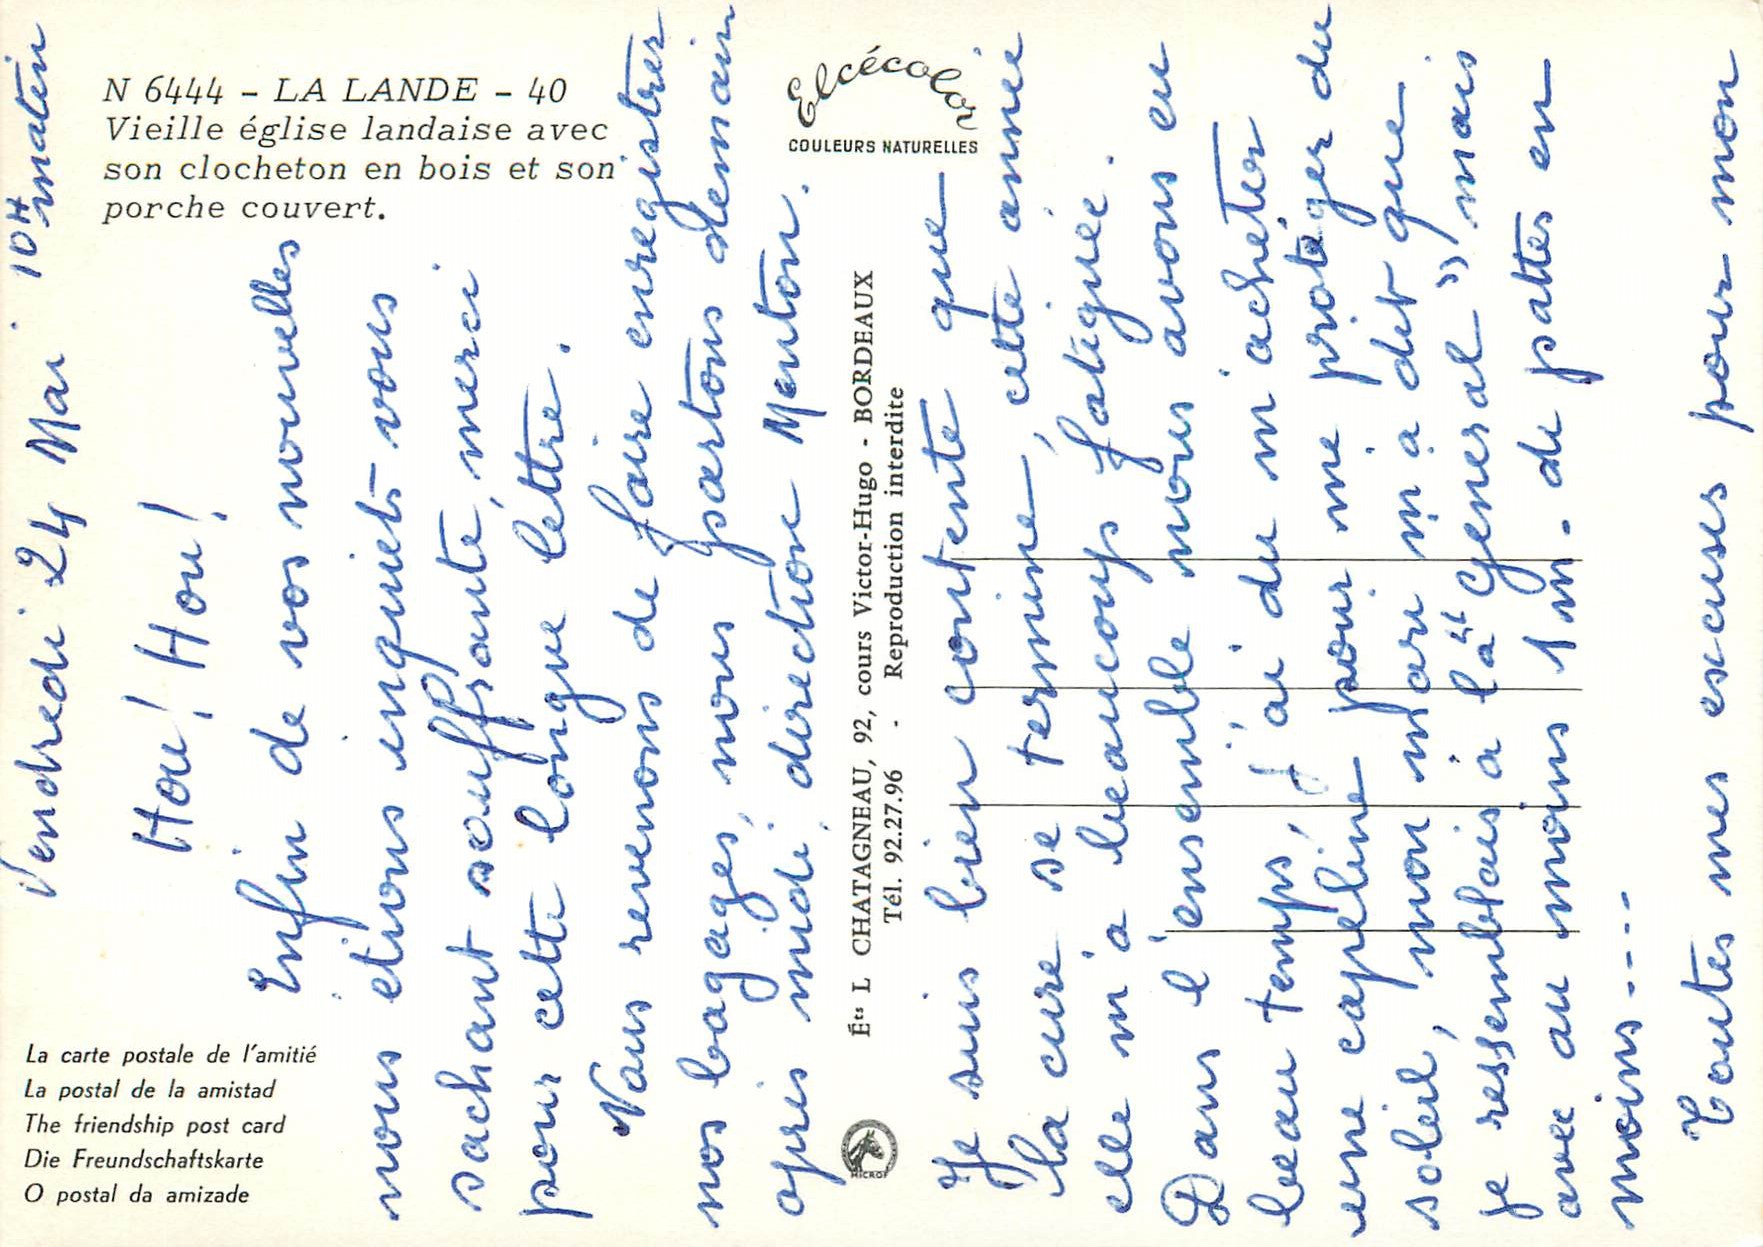 N 6444 - LA LANDE - 40
Vieille église landaise avec
son clocheton en bois et son
porche couvert.
Elcécolor
COULEURS NATURELLES
La carte postale de l'amitié
La postal de la amistad
The friendship post card
Die Freundschaftskarte
O postal da amizade
Éts L CHATAGNEAU, 92, cours Victor-Hugo - BORDEAUX
Tél. 92.27.96 - Reproduction interdite
MICROF
Vendredi 24 Mai 10H matin
Hou! Hou!
Enfin de vos nouvelles
nous étions inquiets vous
sachant souffrante, merci
pour cette longue lettre.
Nous revenons de faire enregistrer
nos bagages, nous partons demain
après midi direction Menton.
Je suis bien contente que
la cure se termine, cette année
elle m'a beaucoup fatiguée.
Dans l'ensemble nous avons eu
beau temps, j'ai du m'acheter
une capeline pour me protéger du
soleil, mon mari m'a dit que
je ressemblais à la "générale" mais
avec au moins 1m. de pattes en
moins ....
Toutes mes excuses pour mon